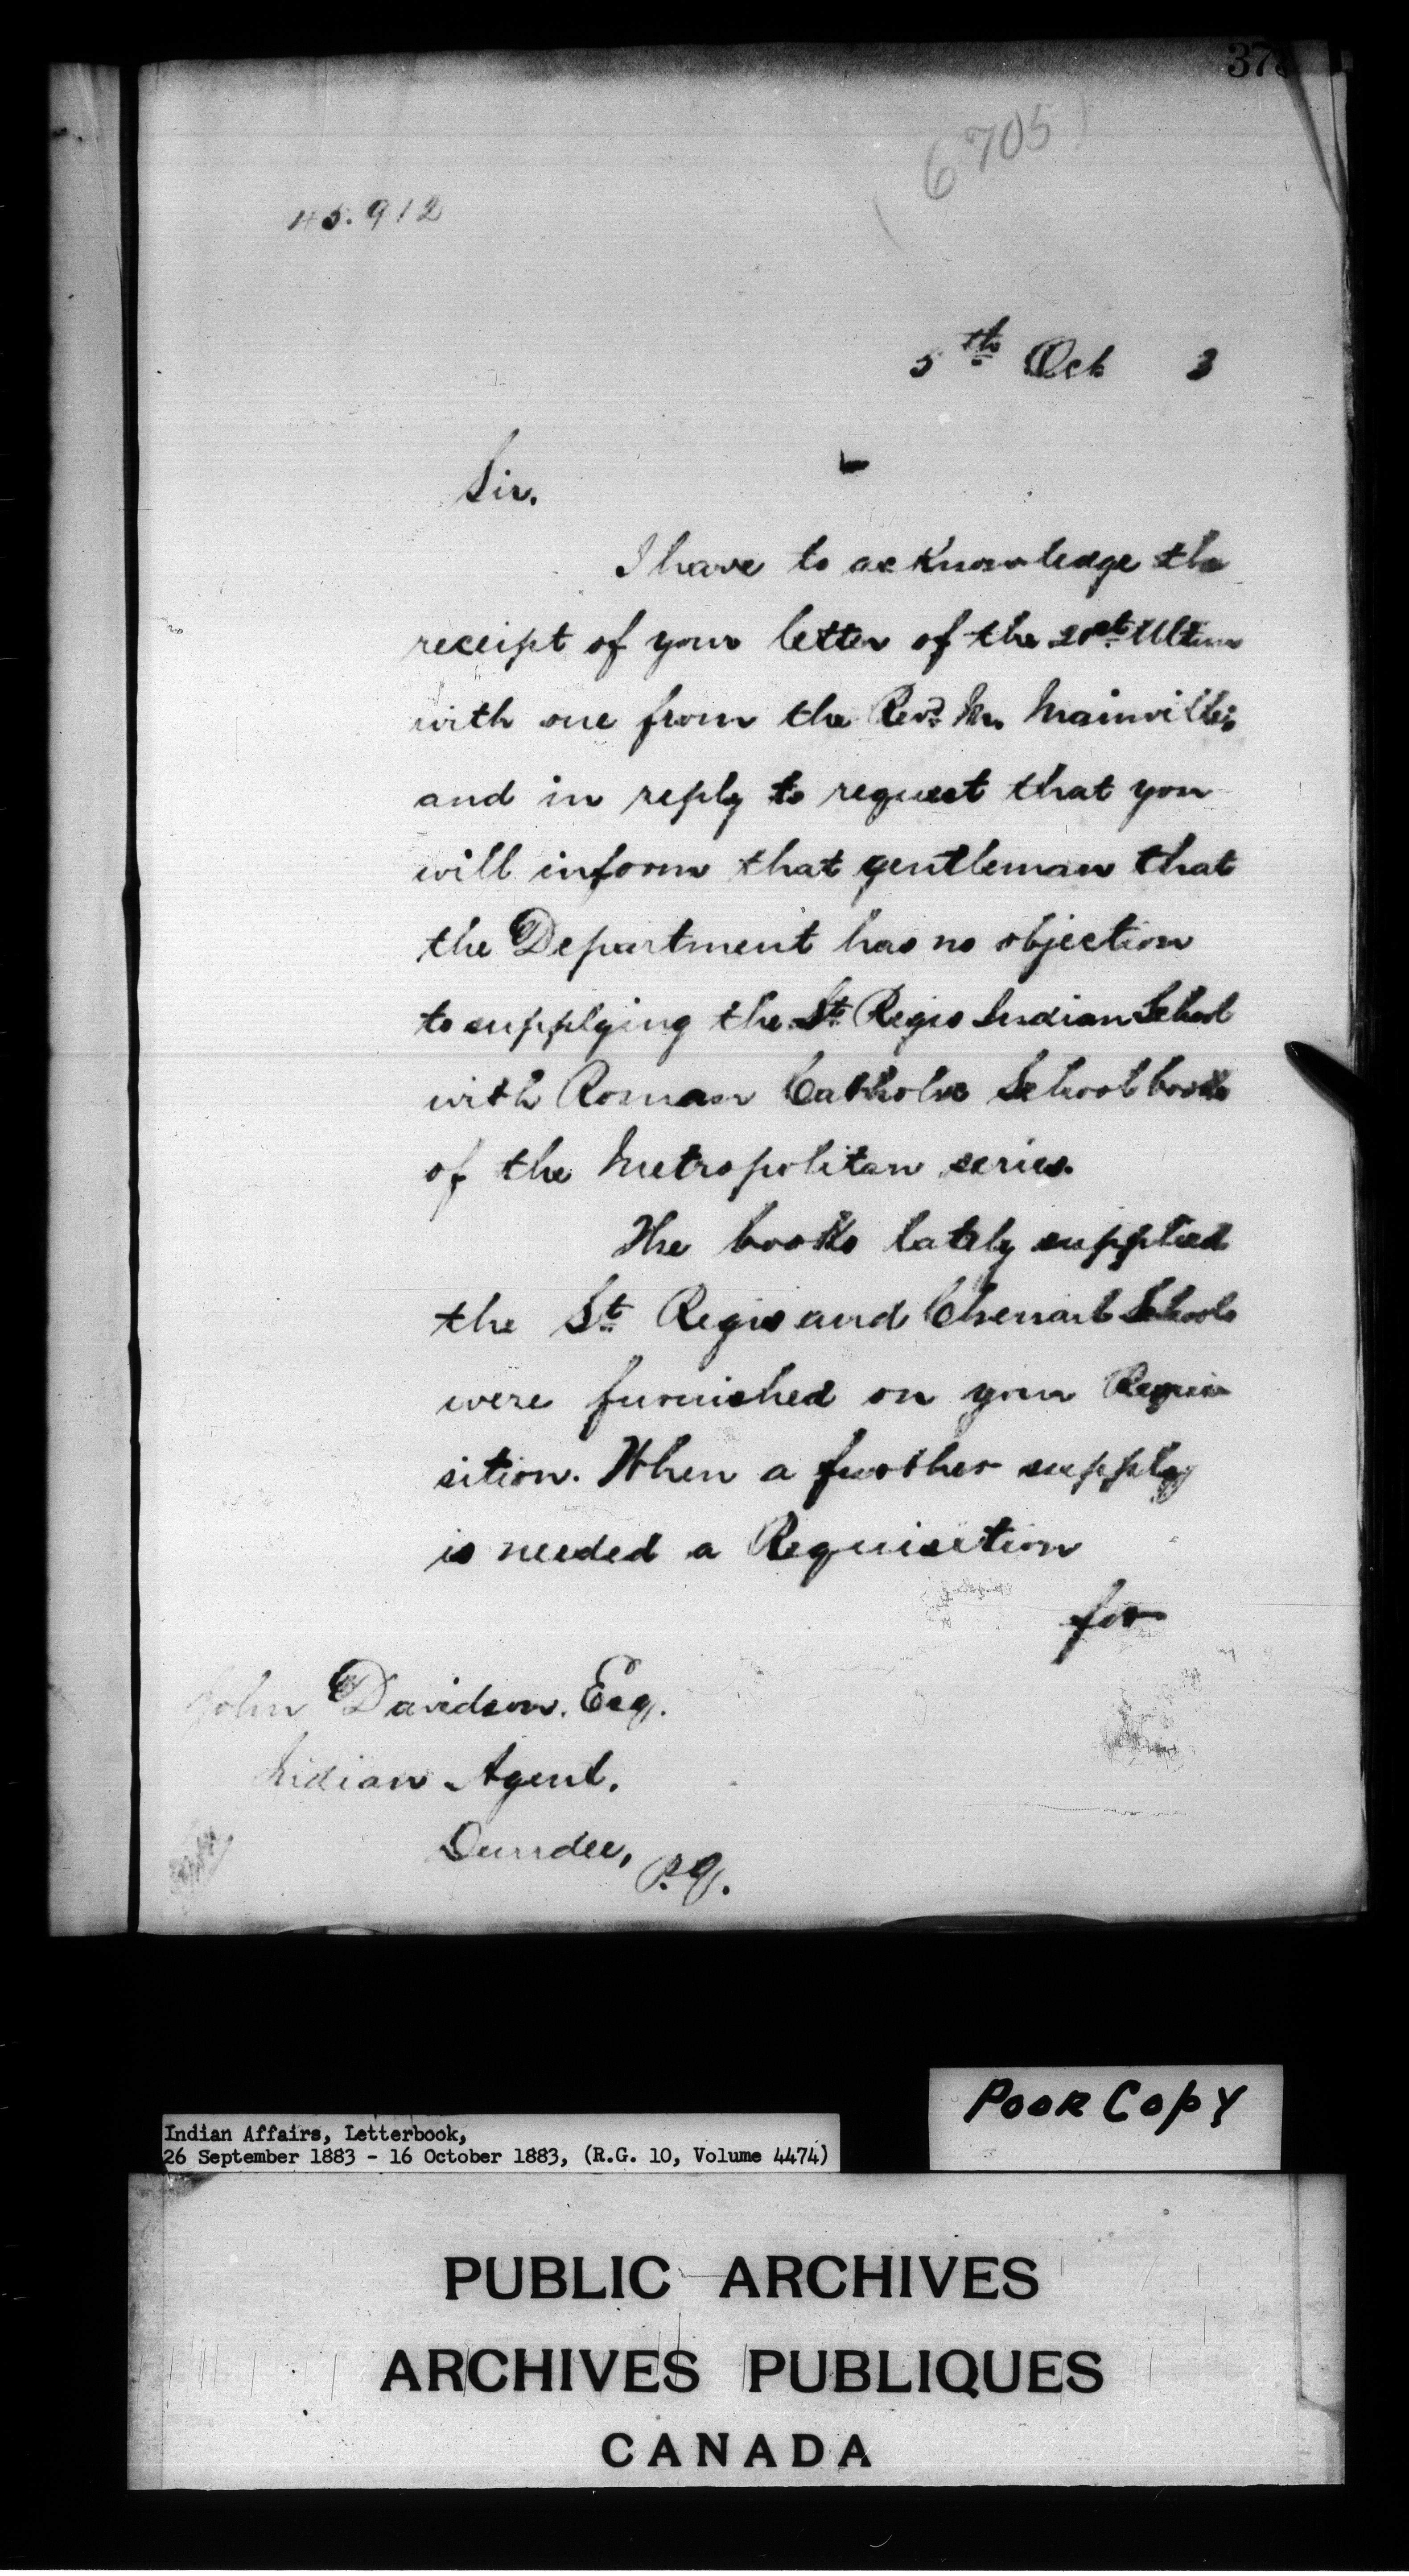 6705
45.912
5th Oct 3
Sir.
I have to acknowledge the
receipt of your letter of the 21st Ultimo
with one from the Revd. Mr. Mainville,
and in reply to request that you
will inform that gentleman that
the Department has no objection
to supplying the St. Regis Indian School
with Roman Catholic School books
of the Metropolitan series.
The books lately supplied
the St. Regis and Chenail Schools
were furnished on your Requi
sition. When a further supply
is needed a Requisition
for
John Davidson. Esq.
Indian Agent.
Dundee, P.Q.
POOR COPY
Indian Affairs, Letterbook,
26 September 1883 - 16 October 1883, (R.G. 10, Volume 4474)
PUBLIC ARCHIVES
ARCHIVES PUBLIQUES
CANADA